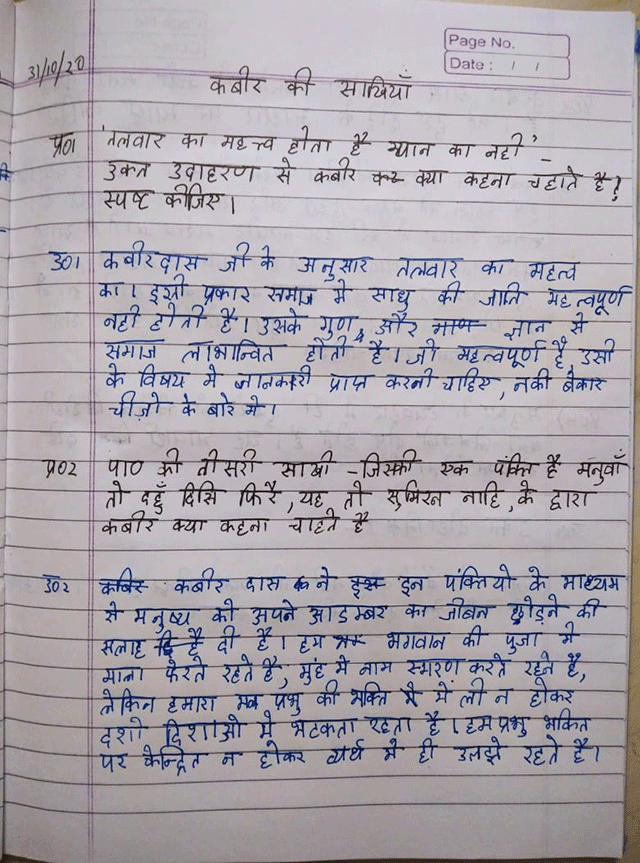 Page No.
Date : / /
31/10/20
कबीर की साखियाँ
प्र01 'तलवार का महत्त्व होता है म्यान का नहीं' -
उक्त उदाहरण से कबीर क्या कहना चहाते है?
स्पष्ट कीजिए।
उ01 कबीरदास जी के अनुसार तलवार का महत्व
का। इसी प्रकार समाज मे साधु की जाति महत्वपूर्ण
नही होती है। उसके गुण और ज्ञान से
समाज लाभान्वित होती है। जो महत्वपूर्ण है, उसी
के विषय मे जानकारी प्राप्त करनी चाहिए, नकी बेकार
चीज़ो के बारे मे।
प्र02 पाठ की तीसरी साखी - जिसकी एक पंक्ति है मनुवाँ
तो दहुँ दिसि फिरै, यह तो सुमिरन नाहि, के द्वारा
कबीर क्या कहना चाहते है
उ02 कबीर दास ने इन पंक्तियो के माध्यम
से मनुष्य को अपने आडम्बर का जीवन छोड़ने की
सलाह दी है। हम भगवान की पुजा मे
माला फेरते रहते है, मुंह मे नाम स्मरण करते रहते है,
लेकिन हमारा मन प्रभु की भक्ति मे ली न होकर
दशो दिशाओ मे भटकता रहता है। हम प्रभु भक्ति
पर केन्द्रित न होकर व्यर्थ मे ही उलझे रहते है।